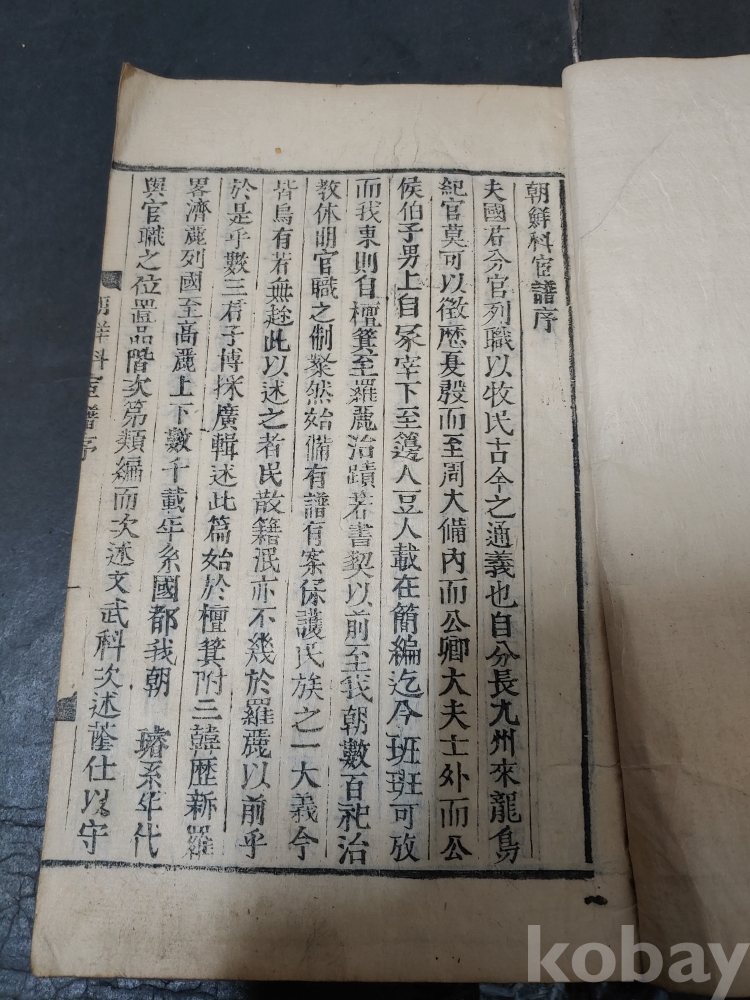 朝鮮科宦譜序
夫國君分官列職以牧民古今之通義也自分長九州來龍鳥
紀官莫可以徵歷夏殷而至周大備內而公卿大夫士外而公
侯伯子男上自冢宰下至籩人豆人載在簡編迄今班班可放
而我東則自檀箕至羅麗治蹟若書契以前至我朝數百祀治
教休明官職之制粲然始備有譜有案保護氏族之一大義今
皆烏有若無趁此以述之者民散籍泯亦不幾於羅麗以前乎
於是乎數三君子博採廣輯述此篇始於檀箕附三韓歷新羅
畧濟麗列國至高麗上下數千載年系國都我朝 璿系年代
與官職之位置品階次第類編而次述文武科次述蔭仕以守
朝鮮科宦譜序
kobay